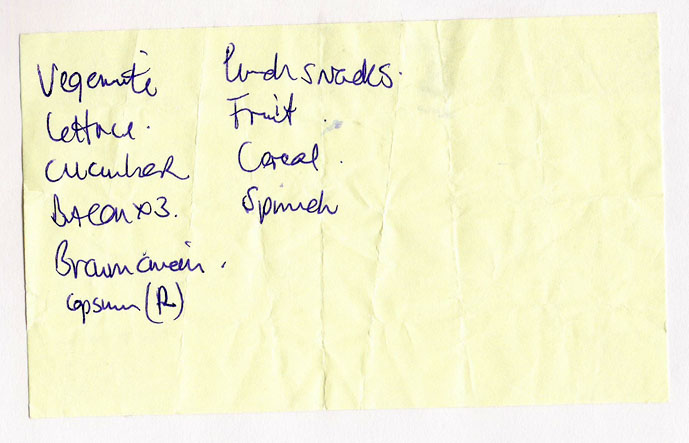 Vegemite
Lettuce.
Cucumber
Bacon x3.
Brown onion.
Capsicum (R)
Lunch snacks.
Fruit.
Cereal.
Spinach